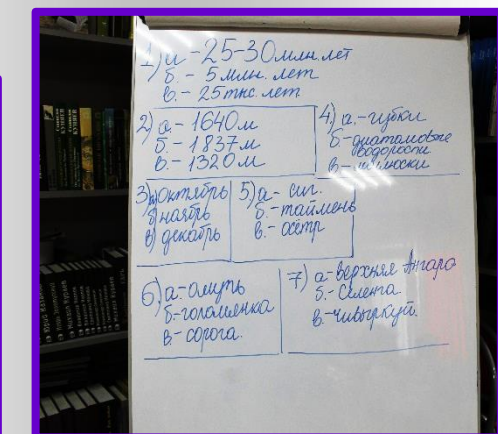 1) а - 25-30 млн. лет
б. - 5 млн. лет
в. - 25 тыс. лет
2) а. - 1640 м
б - 1837 м
в. - 1320 м
4) а. - губки
б - диатомовые
водоросли
в - моллюски
3) а) октябрь
б) ноябрь
в) декабрь
5) а - сиг.
б. - таймень
в. - осётр
6) а - омуль
б - голомянка
в - сорога.
7) а - верхняя Ангара
б. - Селенга
в. - Чивыркуй.